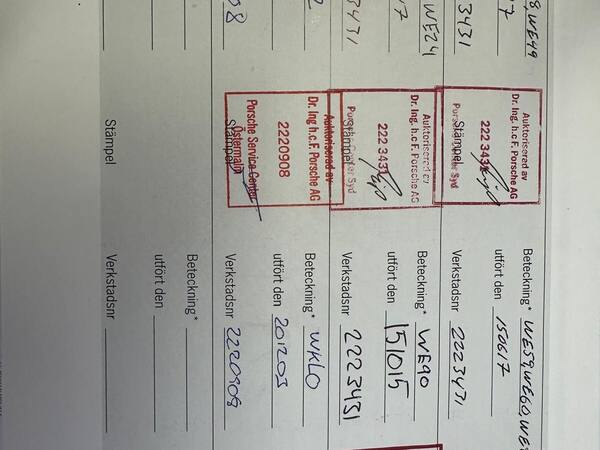 8,WE49
7
3431
Auktoriserad av
Dr. Ing h.c.F. Porsche AG
222 3431
Stämpel
Syd
Beteckning* WE59,WE60,WE
utfört den 150617
Verkstadsnr 2223431
WE24
17
3431
Auktoriserad av
Dr. Ing h.c.F. Porsche AG
222 3431
Stämpel
Syd
Beteckning* WE90
utfört den 151015
Verkstadsnr 2223431
2
08
Auktoriserad av
Dr. Ing h.c.F. Porsche AG
2220908
Porsche Service Center
Stämpel
Östermalm
Beteckning* WKLO
utfört den 201203
Verkstadsnr 2220908
Stämpel
Beteckning*
utfört den
Verkstadsnr